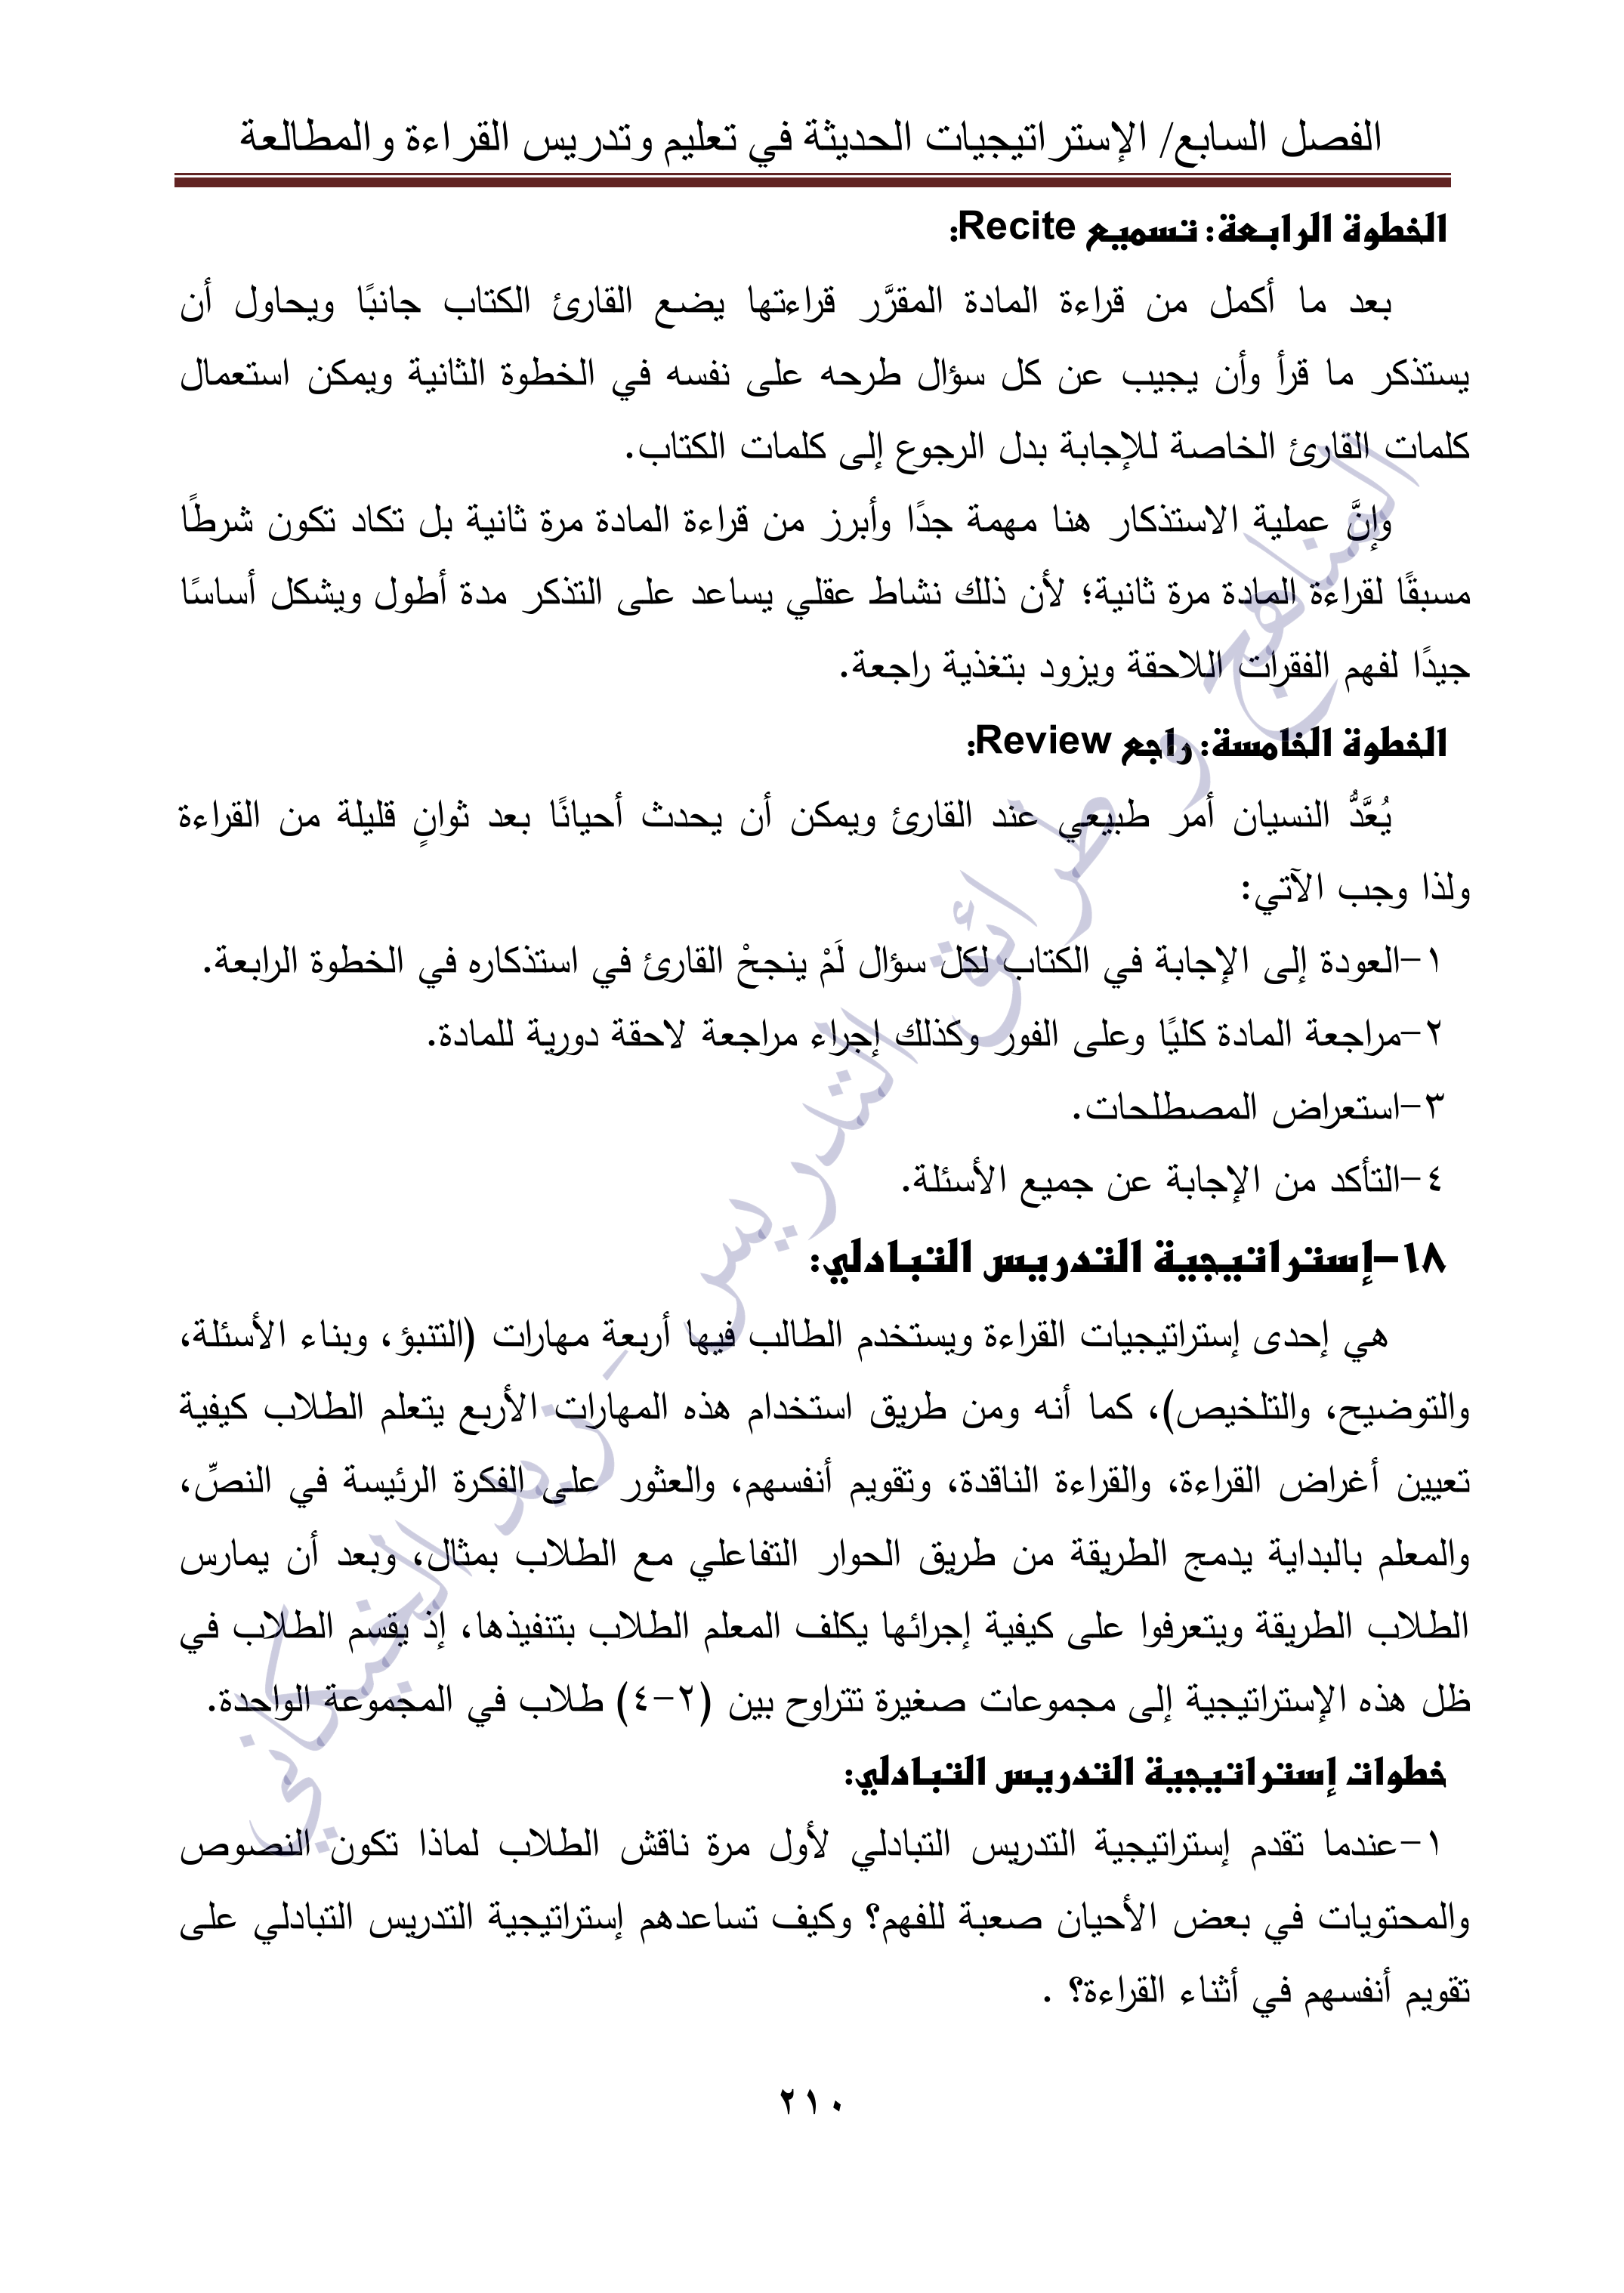 الفصل السابع/ الإستراتيجيات الحديثة في تعليم وتدريس القراءة والمطالعة
الخطوة الرابعة: تسميع Recite:
بعد ما أكمل من قراءة المادة المقرَّر قراءتها يضع القارئ الكتاب جانبًا ويحاول أن
يستذكر ما قرأ وأن يجيب عن كل سؤال طرحه على نفسه في الخطوة الثانية ويمكن استعمال
كلمات القارئ الخاصة للإجابة بدل الرجوع إلى كلمات الكتاب.
وإنَّ عملية الاستذكار هنا مهمة جدًا وأبرز من قراءة المادة مرة ثانية بل تكاد تكون شرطًا
مسبقًا لقراءة المادة مرة ثانية؛ لأن ذلك نشاط عقلي يساعد على التذكر مدة أطول ويشكل أساسًا
جيدًا لفهم الفقرات اللاحقة ويزود بتغذية راجعة.
الخطوة الخامسة: راجع Review:
يُعَّدُّ النسيان أمر طبيعي عند القارئ ويمكن أن يحدث أحيانًا بعد ثوانٍ قليلة من القراءة
ولذا وجب الآتي:
١-العودة إلى الإجابة في الكتاب لكل سؤال لَمْ ينجحْ القارئ في استذكاره في الخطوة الرابعة.
٢-مراجعة المادة كليًا وعلى الفور وكذلك إجراء مراجعة لاحقة دورية للمادة.
٣-استعراض المصطلحات.
٤-التأكد من الإجابة عن جميع الأسئلة.
١٨-إستراتيجية التدريس التبادلي:
هي إحدى إستراتيجيات القراءة ويستخدم الطالب فيها أربعة مهارات (التنبؤ، وبناء الأسئلة،
والتوضيح، والتلخيص)، كما أنه ومن طريق استخدام هذه المهارات الأربع يتعلم الطلاب كيفية
تعيين أغراض القراءة، والقراءة الناقدة، وتقويم أنفسهم، والعثور على الفكرة الرئيسة في النصِّ،
والمعلم بالبداية يدمج الطريقة من طريق الحوار التفاعلي مع الطلاب بمثال، وبعد أن يمارس
الطلاب الطريقة ويتعرفوا على كيفية إجرائها يكلف المعلم الطلاب بتنفيذها، إذ يقسم الطلاب في
ظل هذه الإستراتيجية إلى مجموعات صغيرة تتراوح بين (٢-٤) طلاب في المجموعة الواحدة.
خطوات إستراتيجية التدريس التبادلي:
١-عندما تقدم إستراتيجية التدريس التبادلي لأول مرة ناقش الطلاب لماذا تكون النصوص
والمحتويات في بعض الأحيان صعبة للفهم؟ وكيف تساعدهم إستراتيجية التدريس التبادلي على
تقويم أنفسهم في أثناء القراءة؟ .
٢١٠
المناهج و طرائق التدريس - زيد الخيكاني